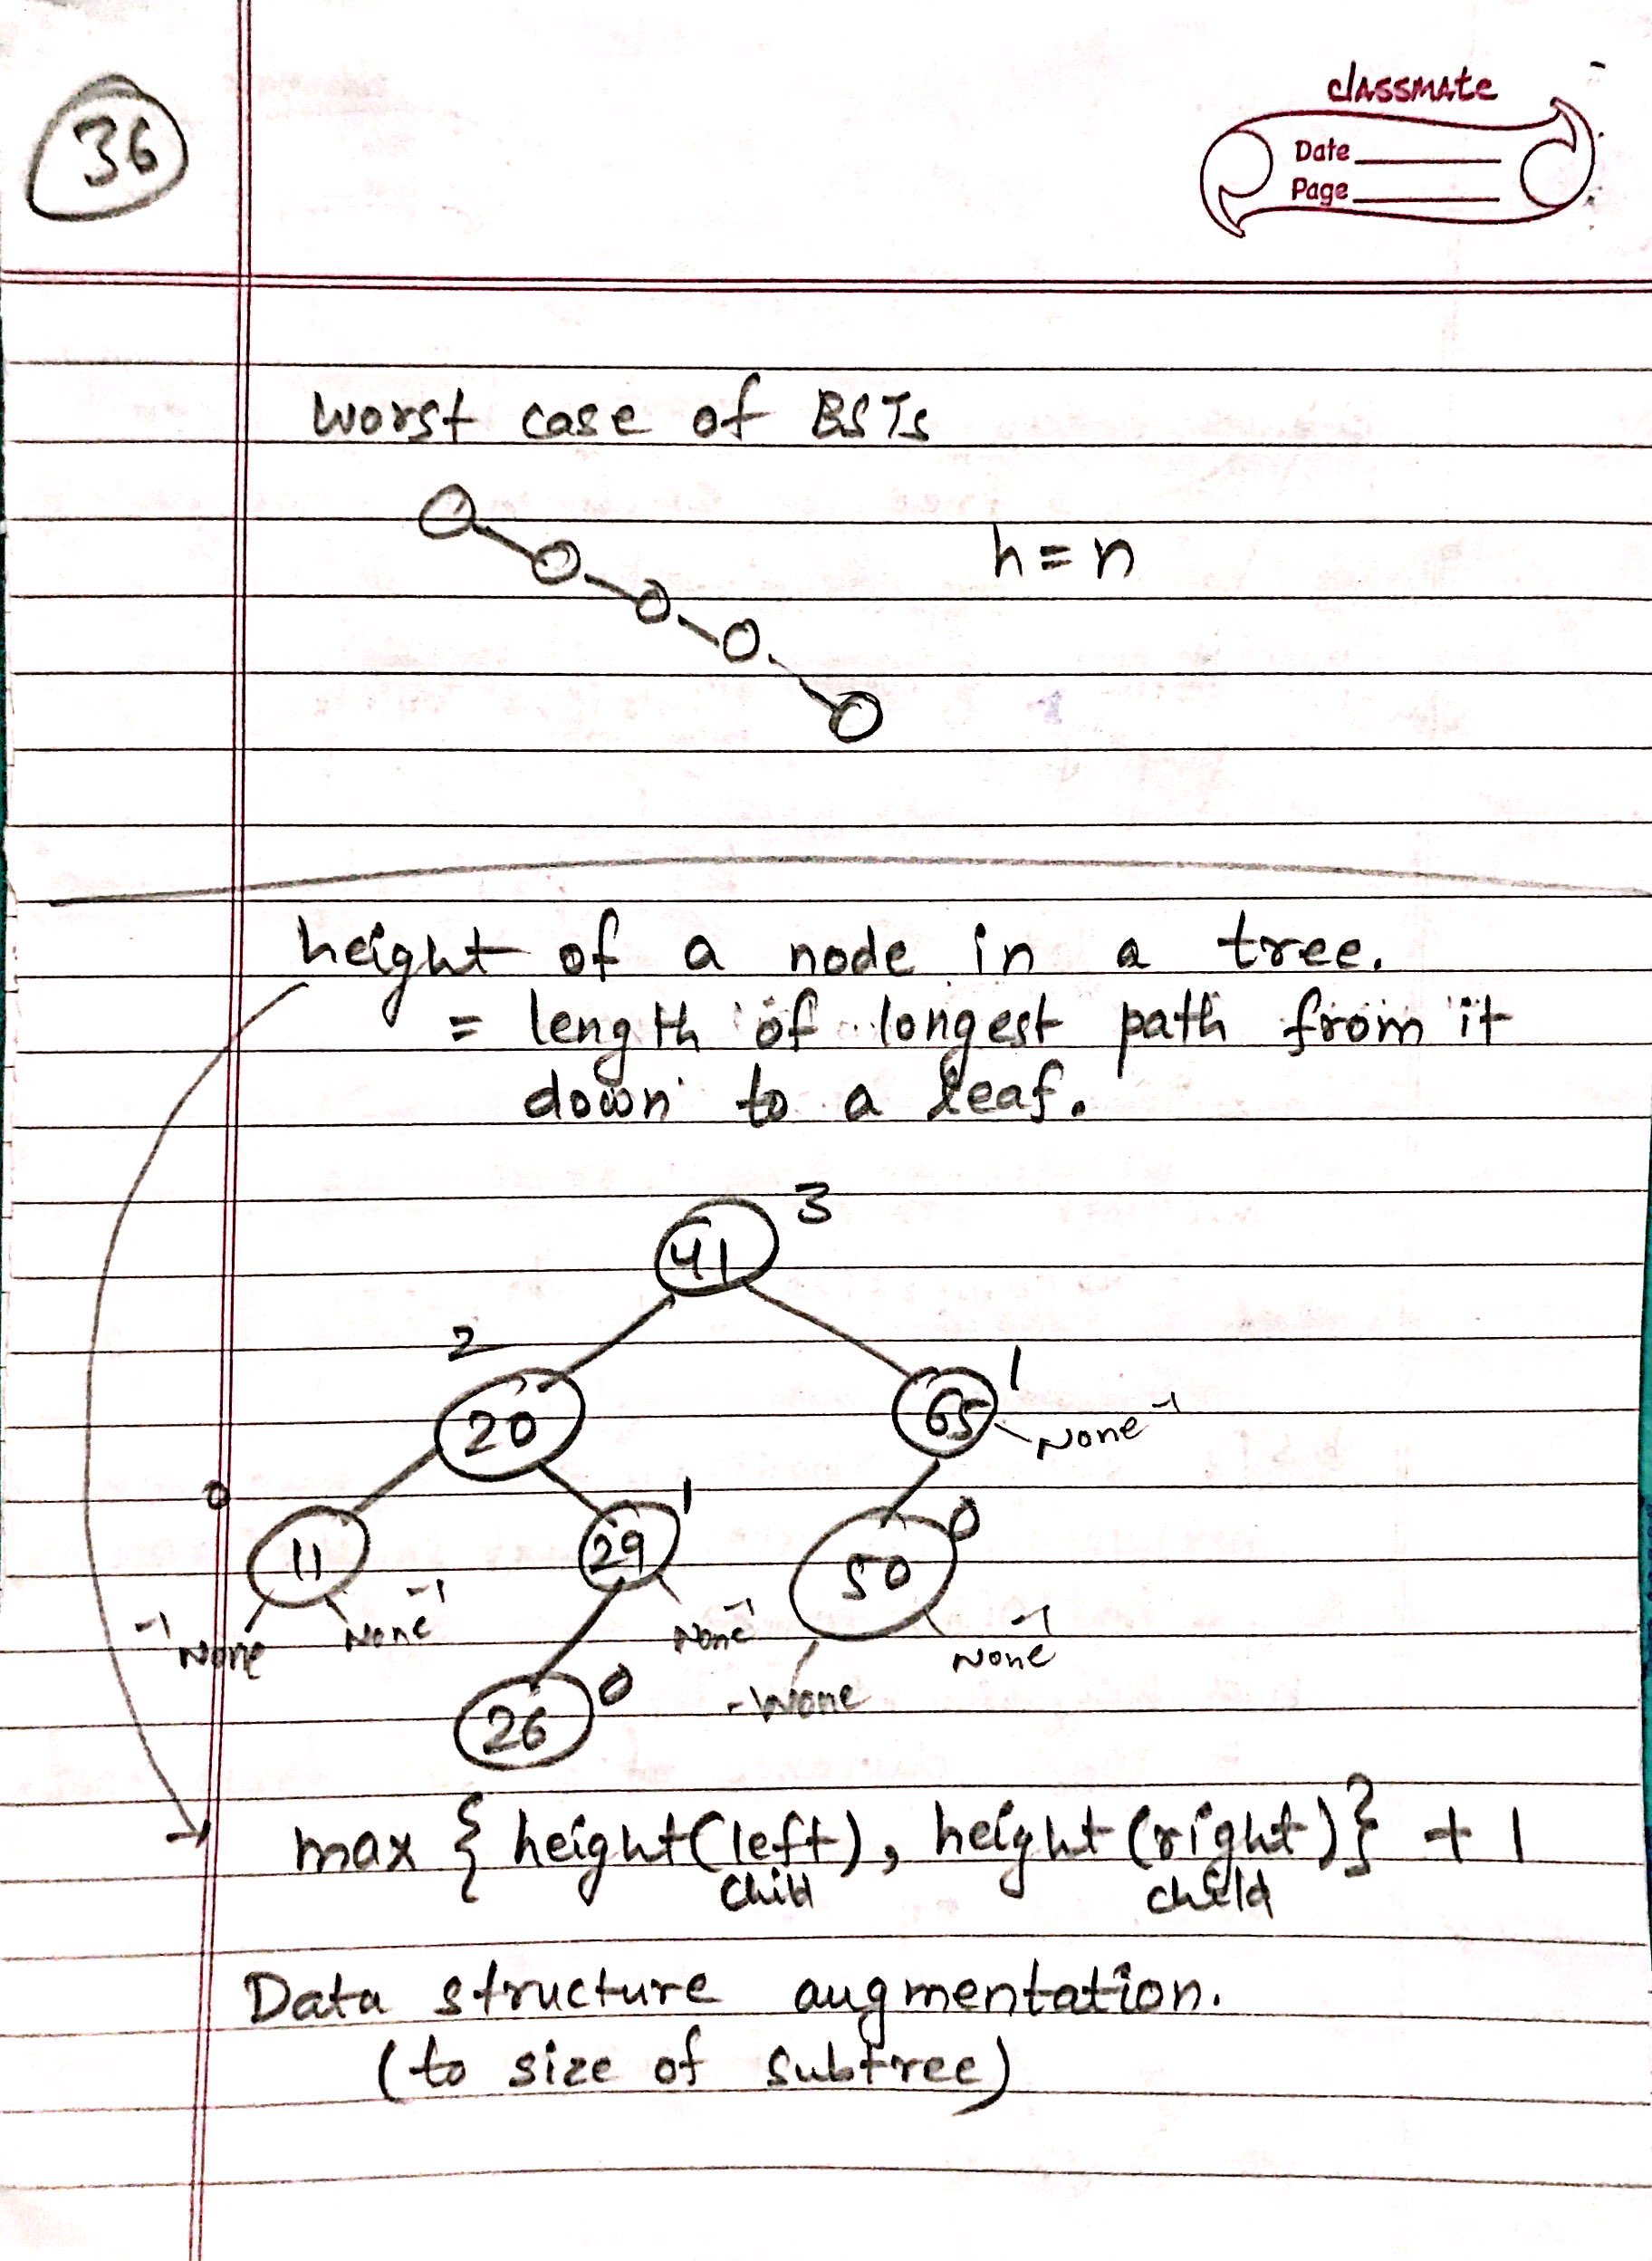 36
classmate
Date
Page
worst case of BSTs
h = n
height of a node in a tree.
= length of longest path from it
down to a leaf.
41 3
2
20
65 1
None -1
0
11
29 1
50 0
-1 None
None -1
None -1
None -1
- None
26 0
max { height (left), height (right) } + 1
child child
Data structure augmentation.
(to size of subtree)